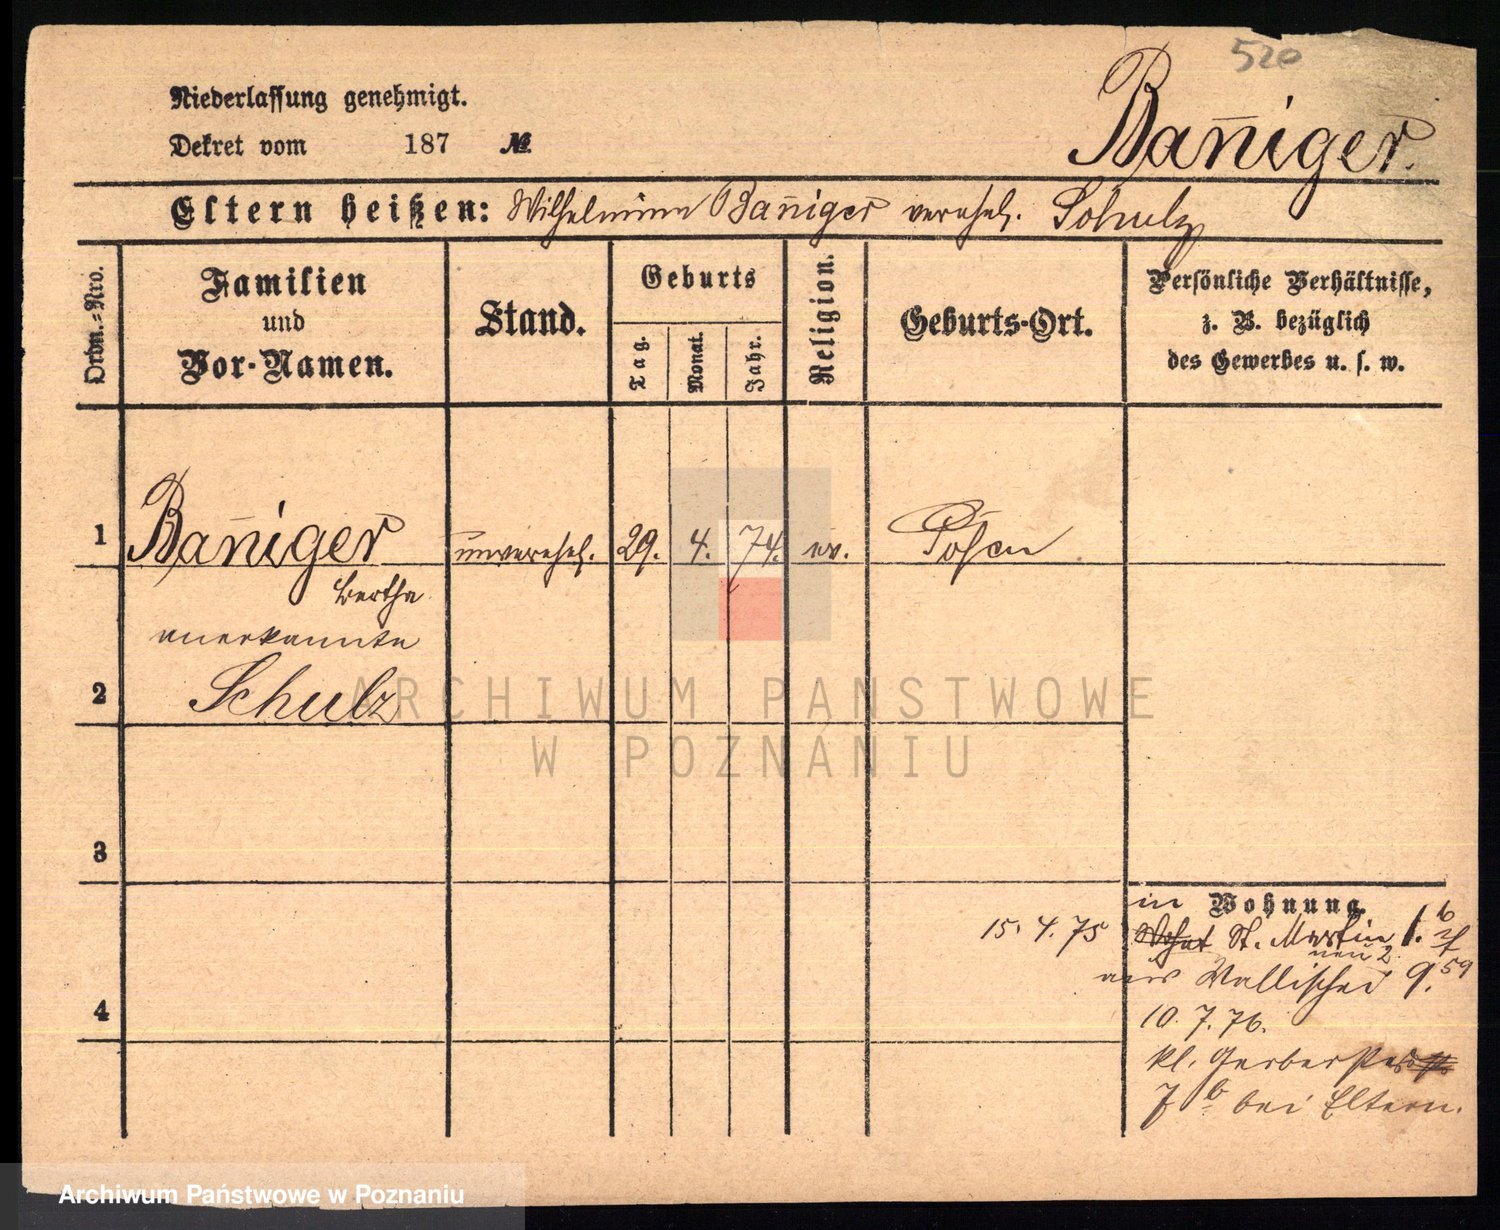 520
Niederlassung genehmigt.
Bañiger.
Dekret vom 187 №.
Eltern heißen: Wilhelmine Bañiger verehel. Schulz
Ordn.-Nro.
Familien und Vor-Namen.
Stand.
Geburts
Tag.
Monat.
Jahr.
Religion.
Geburts-Ort.
Persönliche Verhältnisse,
z. B. bezüglich
des Gewerbes u. s. w.
1 Bañiger unverehel. 29. 4. 74. ev. Posen
Bertha
anerkannte
2 Schulz
3
4
Wohnung.
15. 4. 75 in St. Martin 1.
neu 2
aus Wallischei 9. 59
10. 7. 76.
kl. Gerberstr.
7 b bei Eltern.
ARCHIWUM PANSTWOWE
W POZNANIU
Archiwum Państwowe w Poznaniu